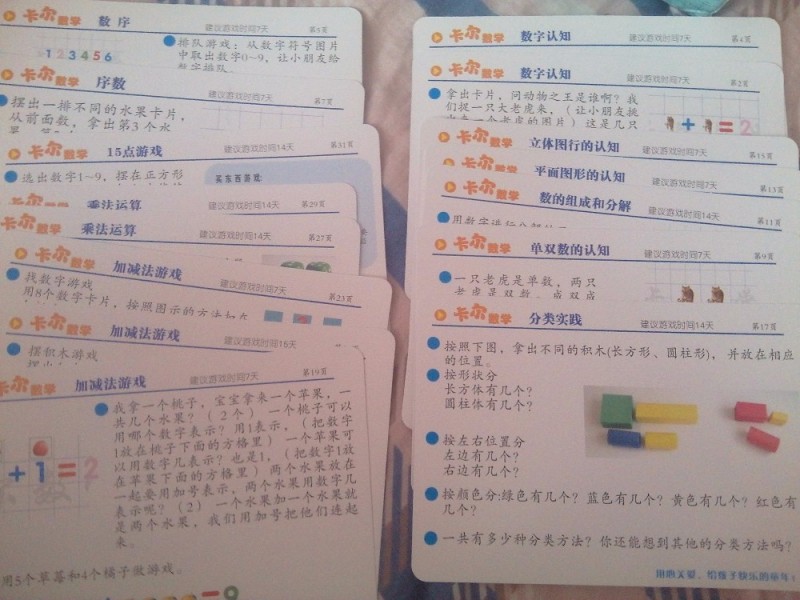 卡尔数学 数序 建议游戏时间7天 第5页
1 2 3 4 5 6
排队游戏：从数字符号图片
中取出数字0~9，让小朋友给
卡尔数学 序数 建议游戏时间7天 第7页
摆出一排不同的水果卡片，
从前面数，拿出第3个水
卡尔数学 15点游戏 建议游戏时间14天 第31页
选出数字1~9，摆在正方形
买东西游戏:
乘法运算 建议游戏时间14天 第29页
卡尔数学 乘法运算 建议游戏时间14天 第27页
卡尔数学 加减法游戏 建议游戏时间7天 第23页
找数字游戏
用8个数字卡片，按照图示的方法加大
卡尔数学 加减法游戏 建议游戏时间15天
摆积木游戏
卡尔数学 加减法游戏 建议游戏时间7天 第19页
我拿一个桃子，宝宝拿来一个苹果，一
共几个水果？（2个）一个桃子可以
用哪个数字表示？用1表示，（把数字
1放在桃子下面的方格里）一个苹果可
以用数字几表示？也是1，（把数字1放
在苹果下面的方格里）两个水果放在
一起要用加号表示，两个水果用数字几
表示呢？（2）一个水果加一个水果就
是两个水果，我们用加号把他们连起
来。
+1=2
用5个草莓和4个橘子做游戏。
=9
卡尔数学 数字认知 建议游戏时间7天 第4页
卡尔数学 数字认知 建议游戏时间7天 第2页
拿出卡片，问动物之王是谁啊？我
们捉一只大老虎来，（让小朋友挑
出来一个老虎的图片）这是几只
+ = 2
卡尔数学 立体图行的认知 建议游戏时间7天 第15页
平面图形的认知 建议游戏时间7天 第13页
卡尔数学 数的组成和分解 建议游戏时间14天 第11页
卡尔数学 单双数的认知 建议游戏时间7天 第9页
一只老虎是单数，两只
老虎是双数
卡尔数学 分类实践 建议游戏时间14天 第17页
按照下图，拿出不同的积木(长方形、圆柱形)，并放在相应
的位置。
按形状分
长方体有几个？
圆柱体有几个？
按左右位置分
左边有几个？
右边有几个？
按颜色分:绿色有几个？蓝色有几个？黄色有几个？红色有
几个？
一共有多少种分类方法？你还能想到其他的分类方法吗？
用心关爱、给孩子快乐的童年！